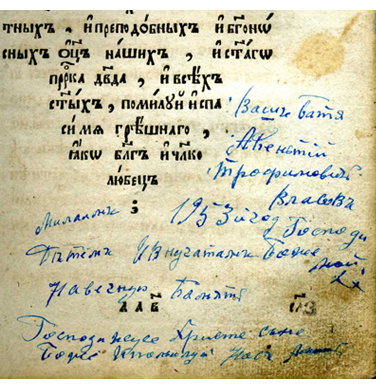 тныхъ, и҆ преподо́бныхъ и҆ бг҃оно́
сныхъ ѻ҆ц҃ъ на́шихъ, и҆ ст҃а́гѡ
прⷪ҇ро́ка дв҃да, и҆ всѣ́хъ
ст҃ы́хъ, поми́лꙋй и҆ спа
си́ мѧ грѣ́шнаго,
ꙗ҆́кѡ бл҃гъ и҆ чл҃ко
лю́бецъ
Вашъ батя
Трофимовичъ
Власовъ
1953 год Господи
Милалонъ
Дѣтемъ И Внучатамъ Боже
мой
На вечную Память
л а в҃
Господи исусе Христе сыне
Боже помилуй насъ